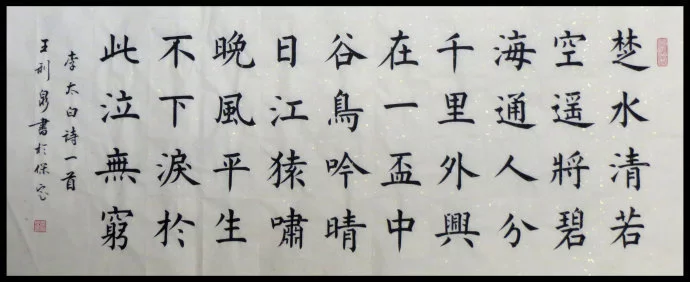 楚水清若
空遥將碧
海通人分
千里外興
在一盃中
谷鳥吟晴
日江猿嘯
晚風平生
不下淚於
此泣無窮
李太白诗一首
王利泉書於保定